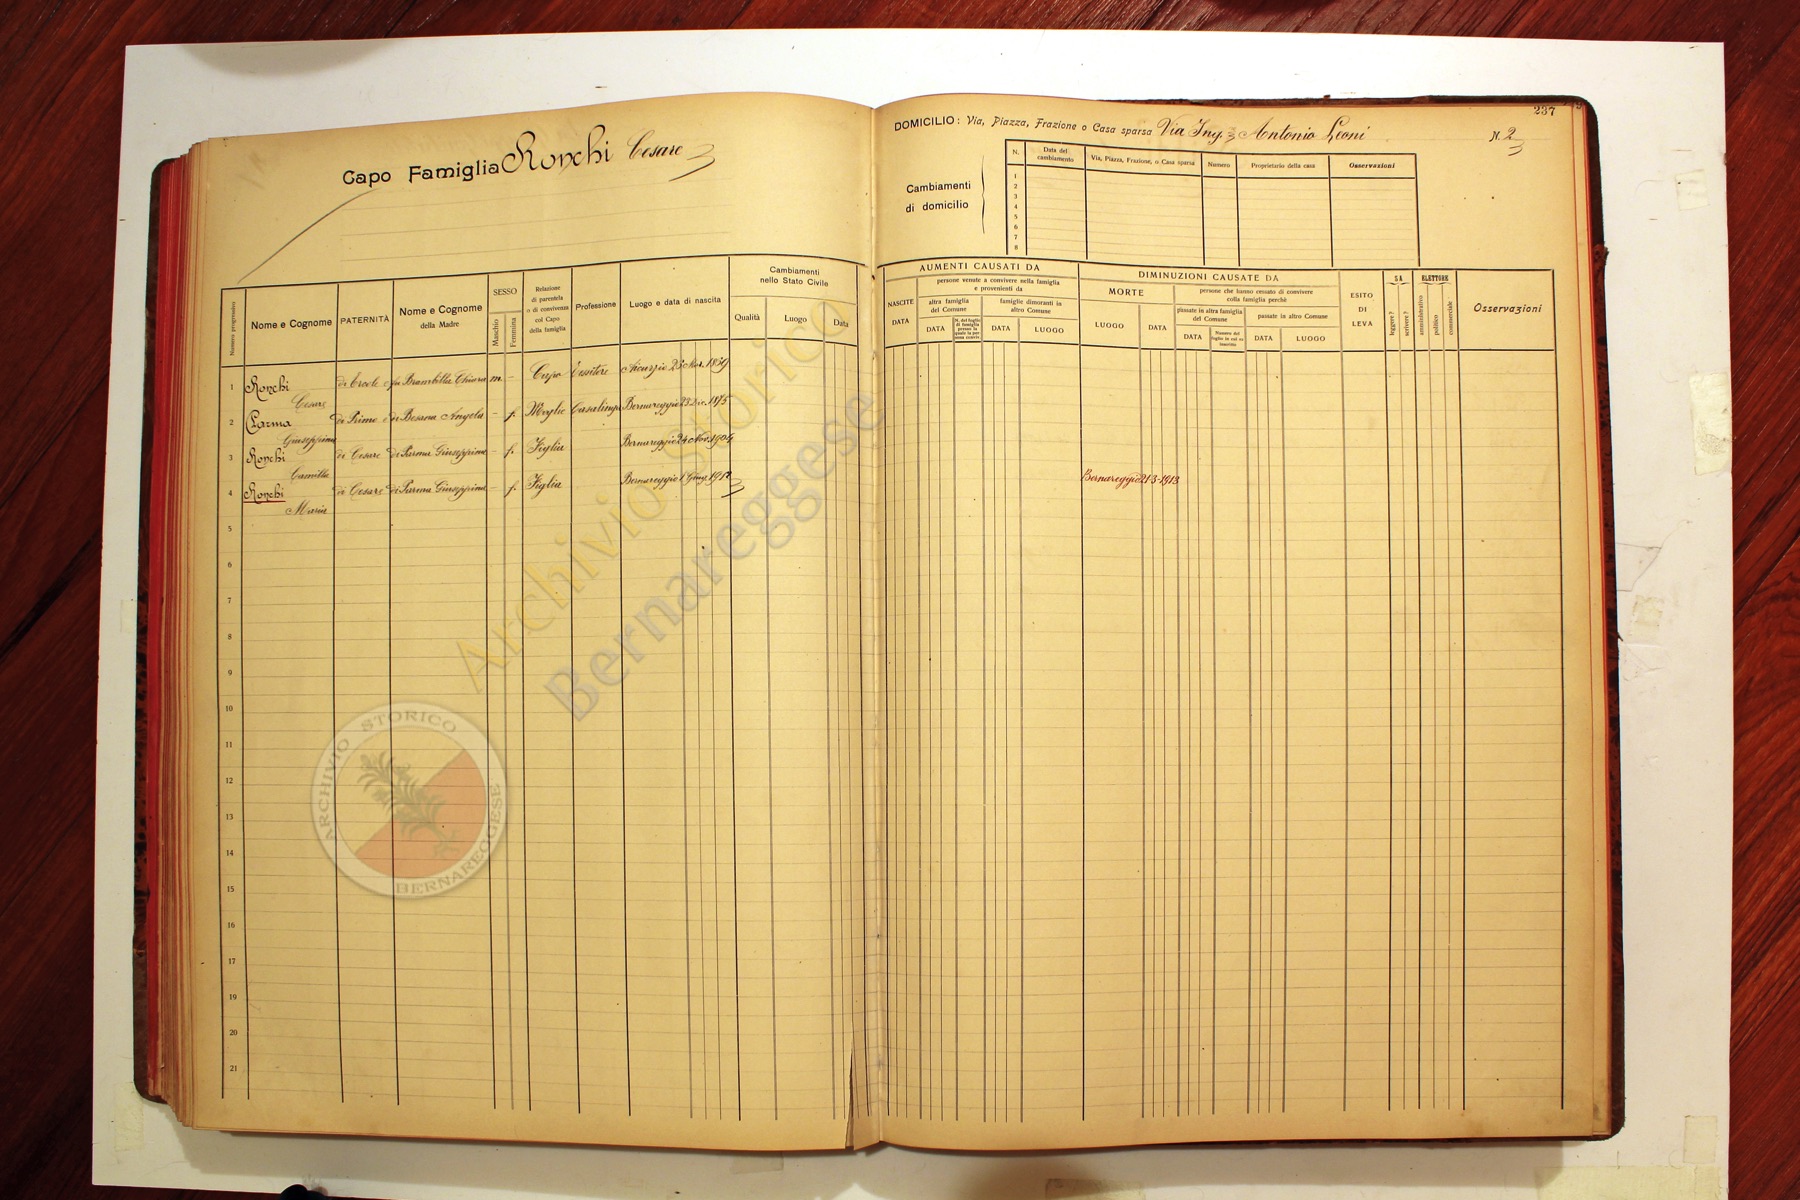 237
Capo Famiglia Ronchi Cesare
DOMICILIO: Via, Piazza, Frazione o Casa sparsa Via Ing. Antonio Leoni N. 2
Cambiamenti
di domicilio
N. Data del cambiamento Via, Piazza, Frazione, o Casa sparsa Numero Proprietario della casa Osservazioni
1
2
3
4
5
6
7
8
Numero progressivo
Nome e Cognome
PATERNITÀ
Nome e Cognome
della Madre
SESSO
Maschio
Femmina
Relazione
di parentela
o di convivenza
col Capo
della famiglia
Professione
Luogo e data di nascita
Cambiamenti
nello Stato Civile
Qualità Luogo Data
AUMENTI CAUSATI DA
NASCITE
DATA
persone venute a convivere nella famiglia
e provenienti da
altra famiglia
del Comune
famiglie dimoranti in
altro Comune
DATA
N. del foglio
di famiglia
presso la
quale la per
sona convive
DATA LUOGO
DIMINUZIONI CAUSATE DA
MORTE
LUOGO DATA
persone che hanno cessato di convivere
colla famiglia perchè
passate in altra famiglia
del Comune
passate in altro Comune
DATA
Numero del
foglio in cui es
inscritto
DATA LUOGO
ESITO
DI
LEVA
SA
leggere?
scrivere?
ELETTORE
amministrativo
politico
commerciale
Osservazioni
1 Ronchi di Ercole e fu Brambilla Chiara m. - Capo Tessitore 23 Nov.
Cesare
2 Parma di Primo e di Besana Angela - f. Moglie Casalinga Bernareggio 23 Dic. 1875
Giuseppina
3 Ronchi di Cesare e di Parma Giuseppina - f. Figlia Bernareggio 24 Nov. 1904
Camilla
4 Ronchi di Cesare e di Parma Giuseppina - f. Figlia Bernareggio 1 Giug. 1912 Bernareggio 21-3-1913
Maria
5
6
7
8
9
10
11
12
13
14
15
16
17
19
20
21
Archivio Storico
Bernareggese
ARCHIVIO STORICO
BERNAREGGESE